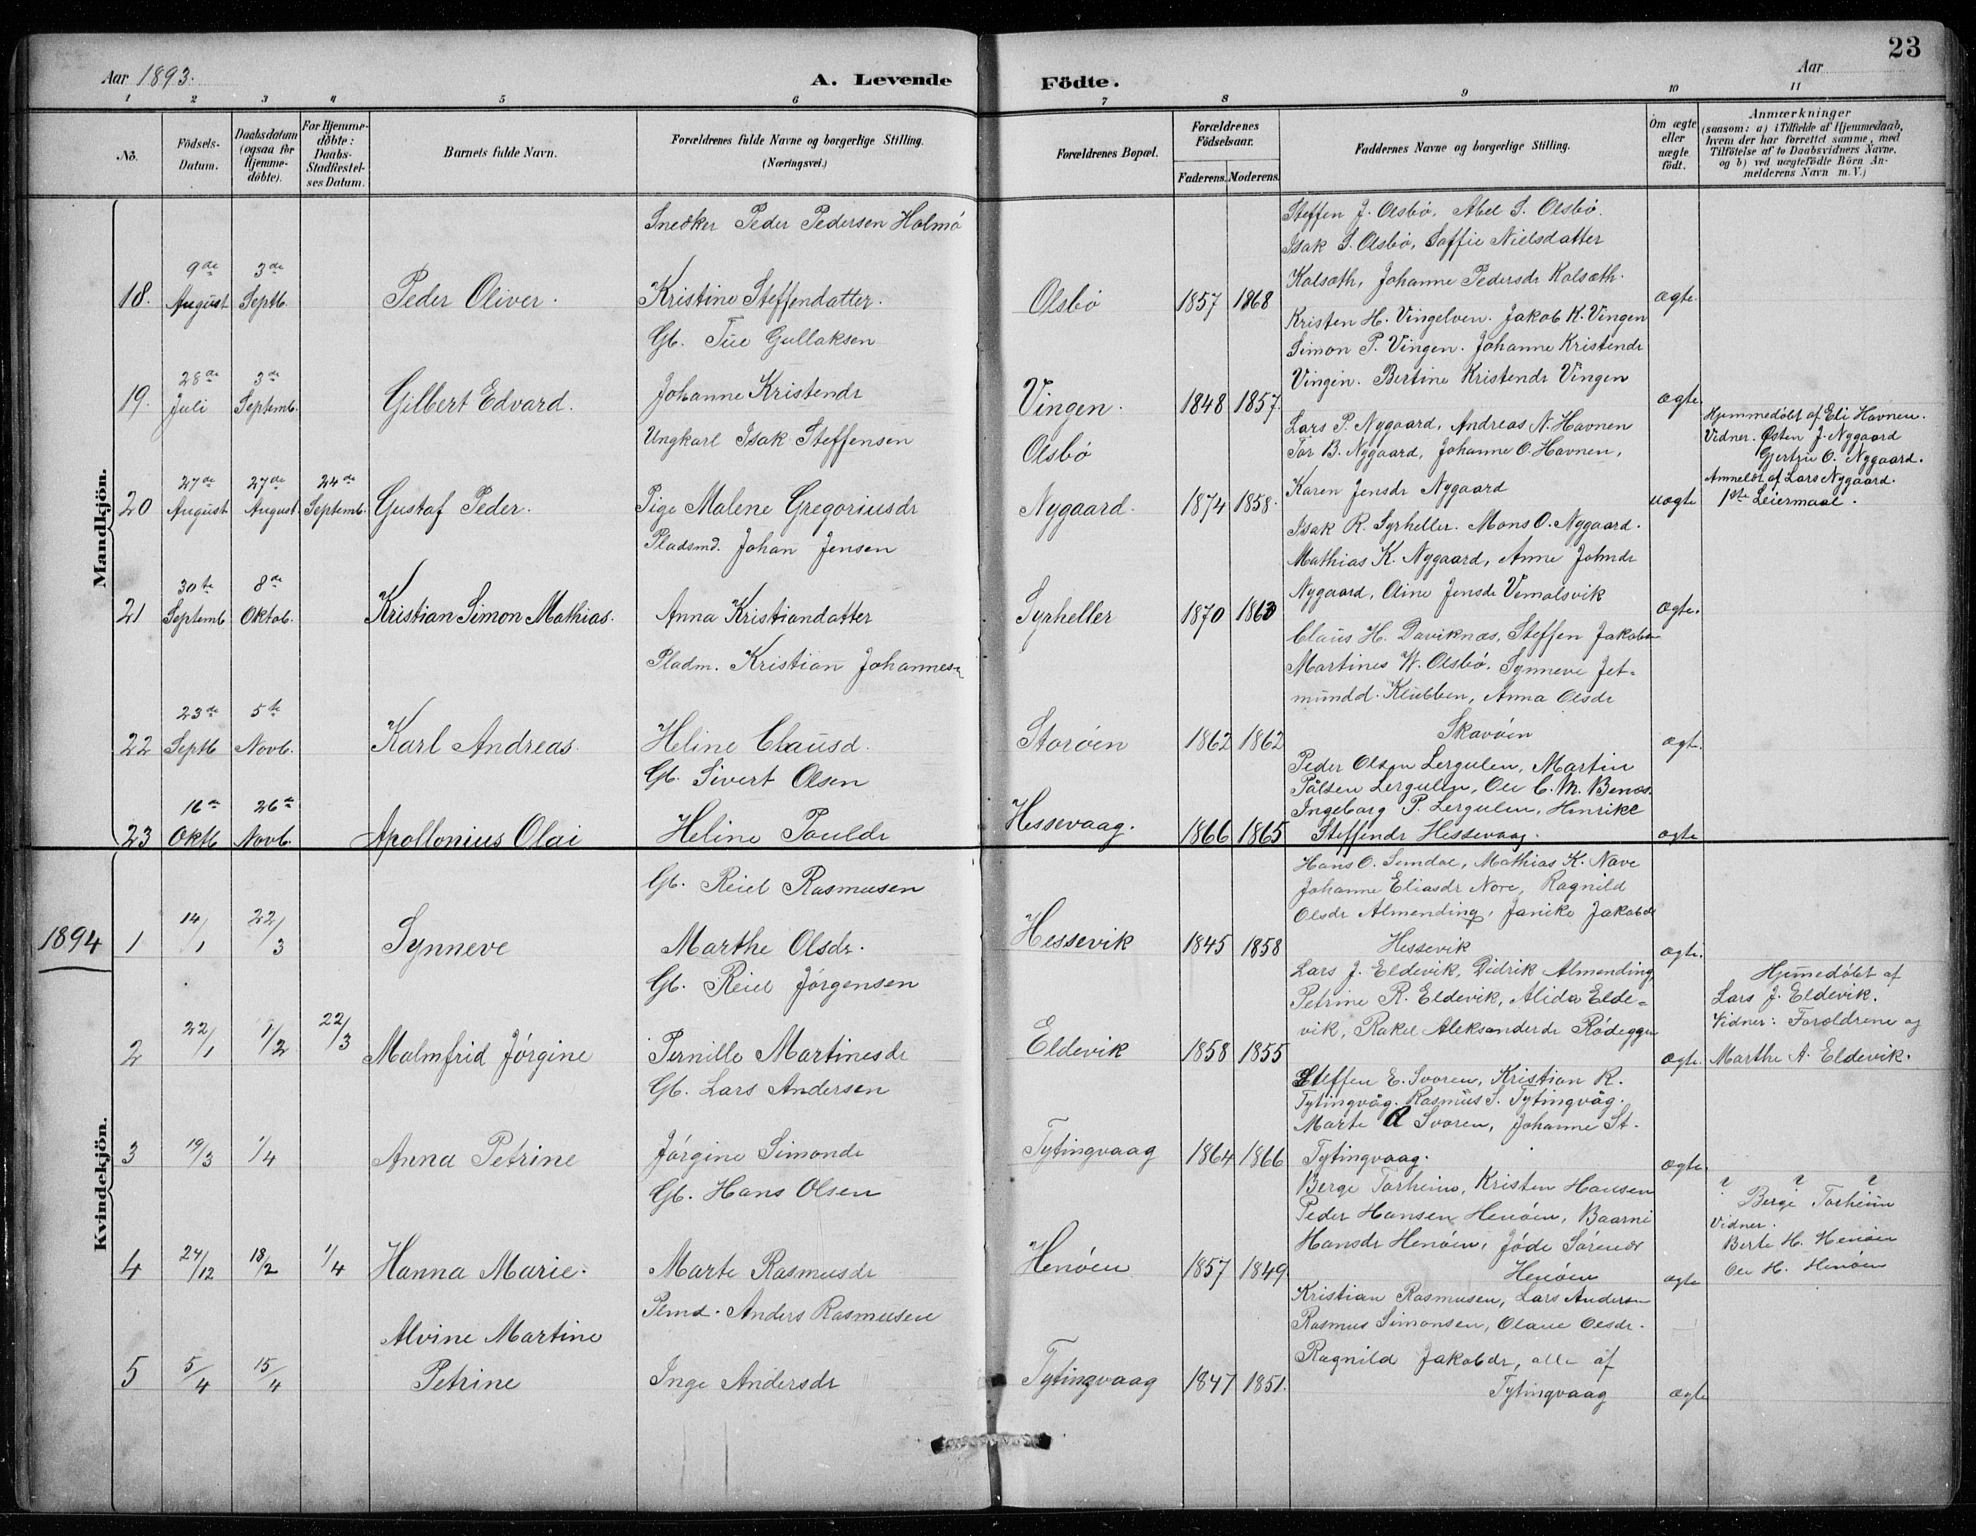 23
Aar 1893.
A. Levende Födte.
Aar
1 2 3 4 5 6 7 8 9 10 11
No. Födsels-Datum. Daabsdatum (ogsaa för Hjemme-döbte). For Hjemme-döbte: Daabs-Stadfæstel-ses Datum. Barnets fulde Navn. Forældrenes fulde Navne og borgerlige Stilling. (Næringsvei.) Forældrenes Bopæl. Forældrenes Födselsaar. Faderens. Moderens. Faddernes Navne og borgerlige Stilling. Om ægte eller uægte födt.
Anmærkninger
(saasom: a) i Tilfælde af Hjemmedaab,
hvem der har forrettet samme, med
Tilföielse af to Daabsvidners Navne,
og b) ved uægtefödte Börn An-
melderens Navn m. V.)
Mandkjön.
Snedker Peder Pedersen Holmö
Steffen J. Olsbö, Abel S. Olsbö.
Isak S. Olsbö, Soffie Nielsdatter
9de 3de
Kolsæth, Johanne Pedersdr Kolsæth.
18. August Septb. Peder Oliver. Kristine Steffendatter. Olsbö 1857 1868 ægte.
Kristen H. Vingelven. Jakob K. Vingen
Gb. Tue Gullaksen
Simon P. Vingen. Johanne Kristendr
28de 3de
Vingen. Bertine Kristendr Vingen
19. Juli Septemb. Gilbert Edvard. Johanne Kristendr Vingen. 1848 1857. ægte
Hjemmedöbt af Eli Havnen.
Lars P. Nygaard, Andreas N. Havnen
Vidner. Østen J. Nygaard
Ungkarl Isak Steffensen Olsbö
Tor B. Nygaard, Johanne O. Havnen,
Gjertrü O. Nygaard.
27de 27de 24de
Karen Jensdr Nygaard
Anmeldt af Lars Nygaard.
20 August August. Septemb. Gustaf Peder. Pige Malene Gregoriusdr Nygaard. 1874 1858. uægte 1ste Leiermaal.
Isak R. Syrheller. Mons O. Nygaard.
Pladsmd. Johan Jensen
Mathias K. Nygaard, Anne Johndr
30te 8de
Nygaard, Oline Jensdr Vemalsvik
21 Septemb Oktob. Kristian Simon Mathias. Anna Kristiandatter Syrheller 1870 1863 ægte.
Claus H. Daviknæs, Steffen Jakobsn
Pladm. Kristian Johannesn
Martines W. Olsbö. Synneve Jet-
mundd. Klubben, Anna Olsdr
23de 5te
Skavöen
22 Septb Novb. Karl Andreas. Heline Clausd. Storöen 1862 1862 ægt.
Peder Olsen Lergulen, Martin
Gb. Sivert Olsen
Pålsen Lergulen, Ole C. M. Benæs.
16de 26de
Ingeborg P. Lergulen, Henrike
23 Oktb Novb. Apollonius Olai Heline Pauldr Hessevaag. 1866 1865 Steffendr Hessevaag. ægte
1894
Kvindekjön.
Gb. Reiel Rasmusen
Hans O. Semdal, Mathias K. Nave
Johanne Eliasdr Nore, Ragnild
Olsdr Almending, Janike Jakobdr
1 14/1 22/3 Synneve Marthe Olsdr. Hessevik 1845 1858 Hessevik ægte.
Gb. Reiel Jørgensen
Lars J. Eldevik, Didrik Almending
Hjemedöbt af
Petrine R. Eldevik, Alida Elde-
Lars J. Eldevik.
vik, Rakel Aleksanderdr Rödeggen
Vidner: Foroldrene og
2 22/1 1/2 22/3 Malmfrid Jørgine Pernille Martinesdr Eldevik 1858 1855 ægte. Marthe A. Eldevik.
Gb. Lars Andersen
Steffen E. Svoren, Kristian R.
Tytingvåg. Rasmus S. Tytingvåg.
Marte A Svoren, Johanne St.
3 19/3 1/4 Anna Petrine Jørgine Simondr Tytingvaag 1864 1866 Tytingvaag. ægte.
Gb. Hans Olsen
Berge Torheim, Kristen Hansen
Berge Torheim
Peder Hansen Henöen, Baarni
Vidner.
Hansdr Henöen, Jöde Sörendr
Berte H. Henöen
4 24/12 18/2 1/4 Hanna Marie. Marte Rasmusdr Henöen 1857 1849 Henöen ægte Ole H. Henöen
Plmd. Anders Rasmusen
Kristian Rasmusen, Lars Andersn
Alvine Martine
Rasmus Simonsen, Olave Olsdr.
Ragnild Jakobdr, alle af
5 5/4 15/4 Petrine Inge Andersdr Tytingvaag 1847 1851. Tytingvaag ægte